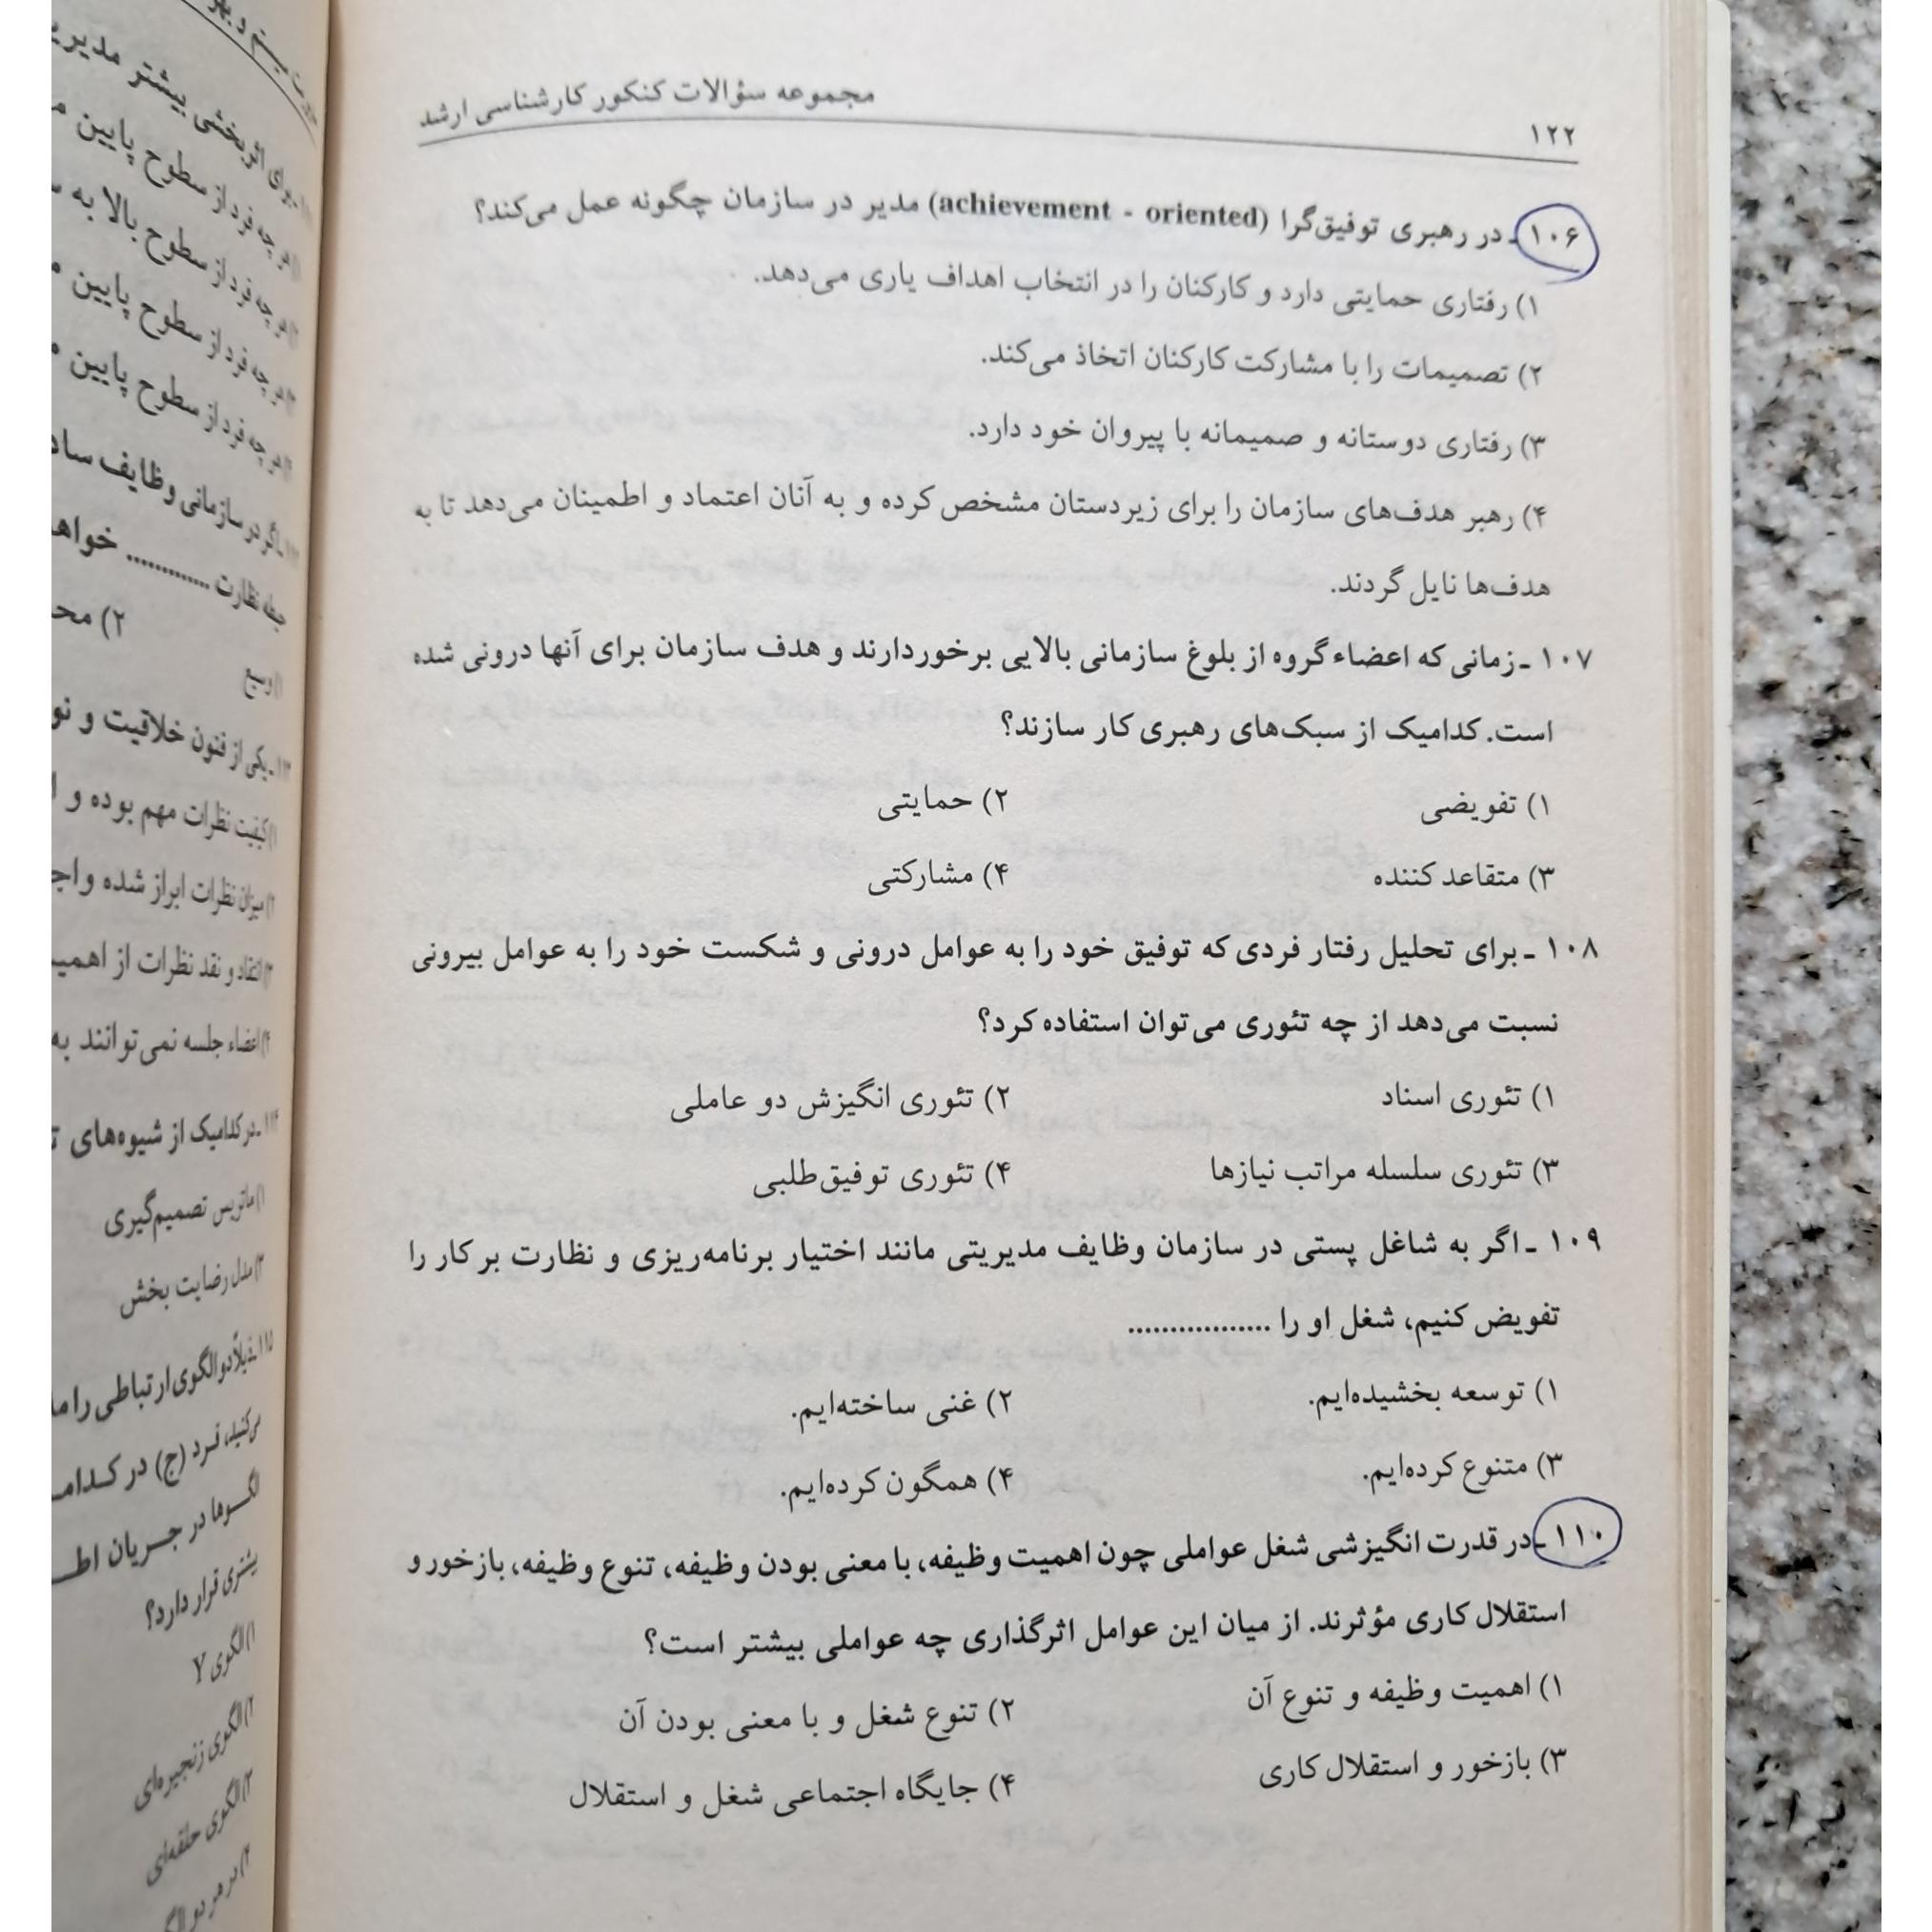 ۱۲۲
مجموعه سؤالات کنکور کارشناسی ارشد
۱۰۶ ـ در رهبری توفیق‌گرا (achievement - oriented) مدیر در سازمان چگونه عمل می‌کند؟
۱) رفتاری حمایتی دارد و کارکنان را در انتخاب اهداف یاری می‌دهد.
۲) تصمیمات را با مشارکت کارکنان اتخاذ می‌کند.
۳) رفتاری دوستانه و صمیمانه با پیروان خود دارد.
۴) رهبر هدف‌های سازمان را برای زیردستان مشخص کرده و به آنان اعتماد و اطمینان می‌دهد تا به
هدف‌ها نایل گردند.
۱۰۷ ـ زمانی که اعضاء گروه از بلوغ سازمانی بالایی برخوردارند و هدف سازمان برای آنها درونی شده
است. کدامیک از سبک‌های رهبری کار سازند؟
۱) تفویضی ۲) حمایتی
۳) متقاعد کننده ۴) مشارکتی
۱۰۸ ـ برای تحلیل رفتار فردی که توفیق خود را به عوامل درونی و شکست خود را به عوامل بیرونی
نسبت می‌دهد از چه تئوری می‌توان استفاده کرد؟
۱) تئوری اسناد ۲) تئوری انگیزش دو عاملی
۳) تئوری سلسله مراتب نیازها ۴) تئوری توفیق‌طلبی
۱۰۹ ـ اگر به شاغل پستی در سازمان وظایف مدیریتی مانند اختیار برنامه‌ریزی و نظارت بر کار را
تفویض کنیم، شغل او را .................
۱) توسعه بخشیده‌ایم. ۲) غنی ساخته‌ایم.
۳) متنوع کرده‌ایم. ۴) همگون کرده‌ایم.
۱۱۰ ـ در قدرت انگیزشی شغل عواملی چون اهمیت وظیفه، با معنی بودن وظیفه، تنوع وظیفه، بازخور و
استقلال کاری مؤثرند. از میان این عوامل اثرگذاری چه عواملی بیشتر است؟
۱) اهمیت وظیفه و تنوع آن ۲) تنوع شغل و با معنی بودن آن
۳) بازخور و استقلال کاری ۴) جایگاه اجتماعی شغل و استقلال
برای اثربخشی بیشتر
هر چه فرد از سطوح پایین
هر چه فرد از سطوح بالا به
هر چه فرد از سطوح پایین
هر چه فرد از سطوح پایین
اگر در سازمانی وظایف
حیطه نظارت ............ خواهد
۲)
۱) وسیع
یکی از فنون خلاقیت و
۱) کیفیت نظرات مهم بوده و
۲) میزان نظرات ابراز شده و
۳) انتقاد و نقد نظرات از
۴) اعضاء جلسه نمی‌توانند به
۱۱۴ ـ در کدامیک از شیوه‌های
۱) ماتریس تصمیم‌گیری
۳) مدل رضایت بخش
۱۱۵ ـ ذیلاً دو الگوی ارتباطی را
می‌کنید، فرد (ج) در
الگوها در جریان
بیشتری قرار دارد؟
۱) الگوی Y
۲) الگوی زنجیره‌ای
۳) الگوی حلقه‌ای
۴) در هر دو